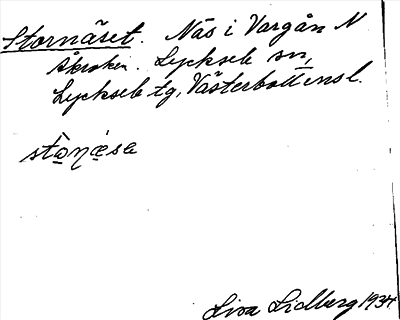 Stornäset. Näs i Vargån N
Åkroken. Lycksele sn,
Lycksele tg, Västerbottens l.
stò̱ṇæ̱sa
Lisa Lidberg 1934